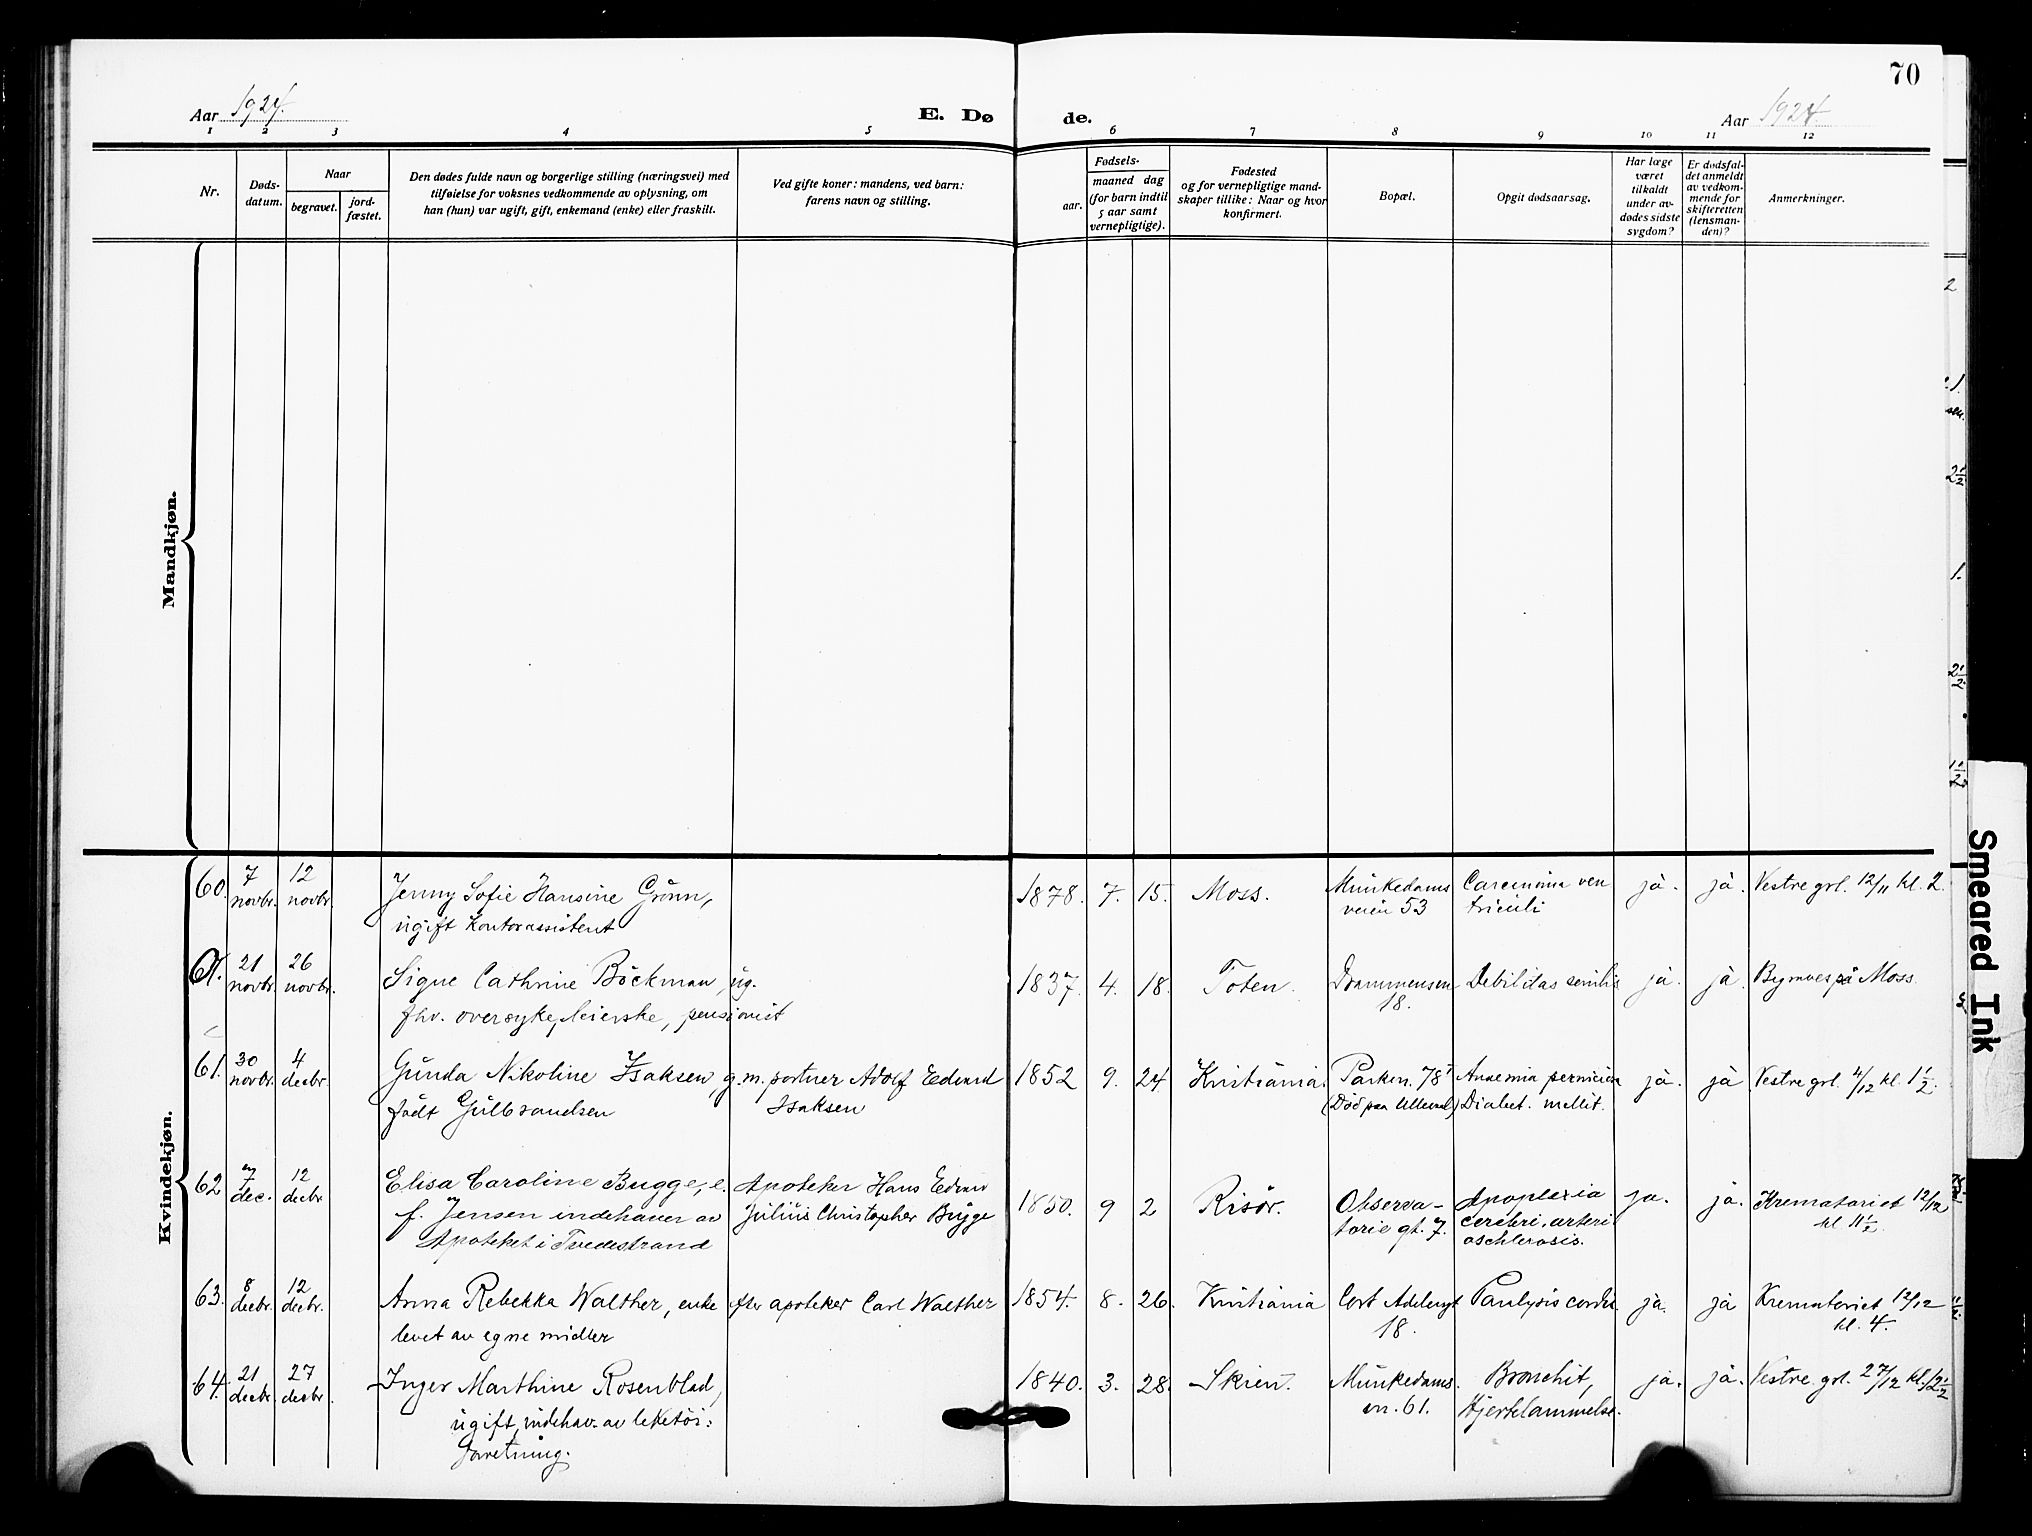 70
Aar 1924.
E. Dø
de.
Aar 1924
1 2 3 4 5 6 7 8 9 10 11 12
Nr.
Døds-
datum.
Naar
begravet.
jord-
fæstet.
Den dødes fulde navn og borgerlige stilling (næringsvei) med
tilføielse for voksnes vedkommende av oplysning, om
han (hun) var ugift, gift, enkemand (enke) eller fraskilt.
Ved gifte koner: mandens, ved barn:
farens navn og stilling.
Fødsels-
aar.
maaned dag
(for barn indtil
5 aar samt
vernepligtige).
Fødested
og for vernepligtige mand-
skaper tillike: Naar og hvor
konfirmert.
Bopæl.
Opgit dødsaarsag.
Har læge
været
tilkaldt
under av-
dødes sidste
sygdom?
Er dødsfal-
det anmeldt
av vedkom-
mende for
skifteretten
(lensman-
den)?
Anmerkninger.
Mandkjøn.
Kvindekjøn.
60. 7 novbr. 12 novbr. Jenny Sofie Hansine Grønn, 1878. 7. 15. Moss. Munkedams Carcinoma ven ja. ja. Vestre grl. 12/11 kl. 2.
ugift kontorassistent veien 53 triculi
21 novbr. 26 novbr. Signe Cathrine Böckman, ug. 1837. 4. 18. Toten. Drammensvn Debilitas senilis ja. ja. Bymoes på Moss.
fhv. oversykepleierske, pensionist 18.
61. 30 novbr. 4 decbr. Gunda Nikoline Isaksen, g.m. portner Adolf Edvard 1852 9. 24 Kristiania. Parkvn. 78 Anaemia perniciosa ja. ja Vestre grl. 4/12 kl. 1½.
født Gulbrandsen Isaksen (Död paa Ullevaal) Diabet. mellit.
62 7 dec. 12 decbr. Elisa Caroline Bugge, e. Apoteker Hans Edvard 1850. 9 2 Risör. Observa- Apoplexia ja. ja. Krematoriet 12/12
f. Jensen indehaver av Julius Christopher Bugge torie gt. 7. cerebri, arteri kl 11½.
Apoteket i Tvedestrand oschlerosis.
63. 8 decbr. 12 decbr. Anna Rebekka Walther, enke efter apoteker Carl Walther 1854. 8. 26. Kristiania Cort Adelersgt Paralysis cordis ja. ja Krematoriet 12/12
levet av egne midler 18. kl. 4.
64. 21 decbr. 27 decbr. Inger Marthine Rosenblad, 1840. 3. 28. Skien. Munkedams. Bronchit, ja. ja. Vestre grl. 27/12 kl. 12½
ugift, indehav. av leketöi: vn. 61. Hjertelammelse.
forretning.
Smeared Ink